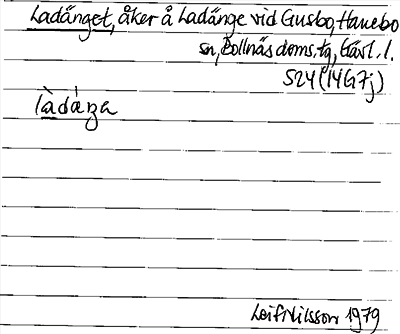 Ladänget, åker å Ladänge vid Gusbo, Hanebo
sn, Bollnäs doms.tg, Gävl. l.
S24 (14G7j)
làdáŋa
Leif Nilsson 1979